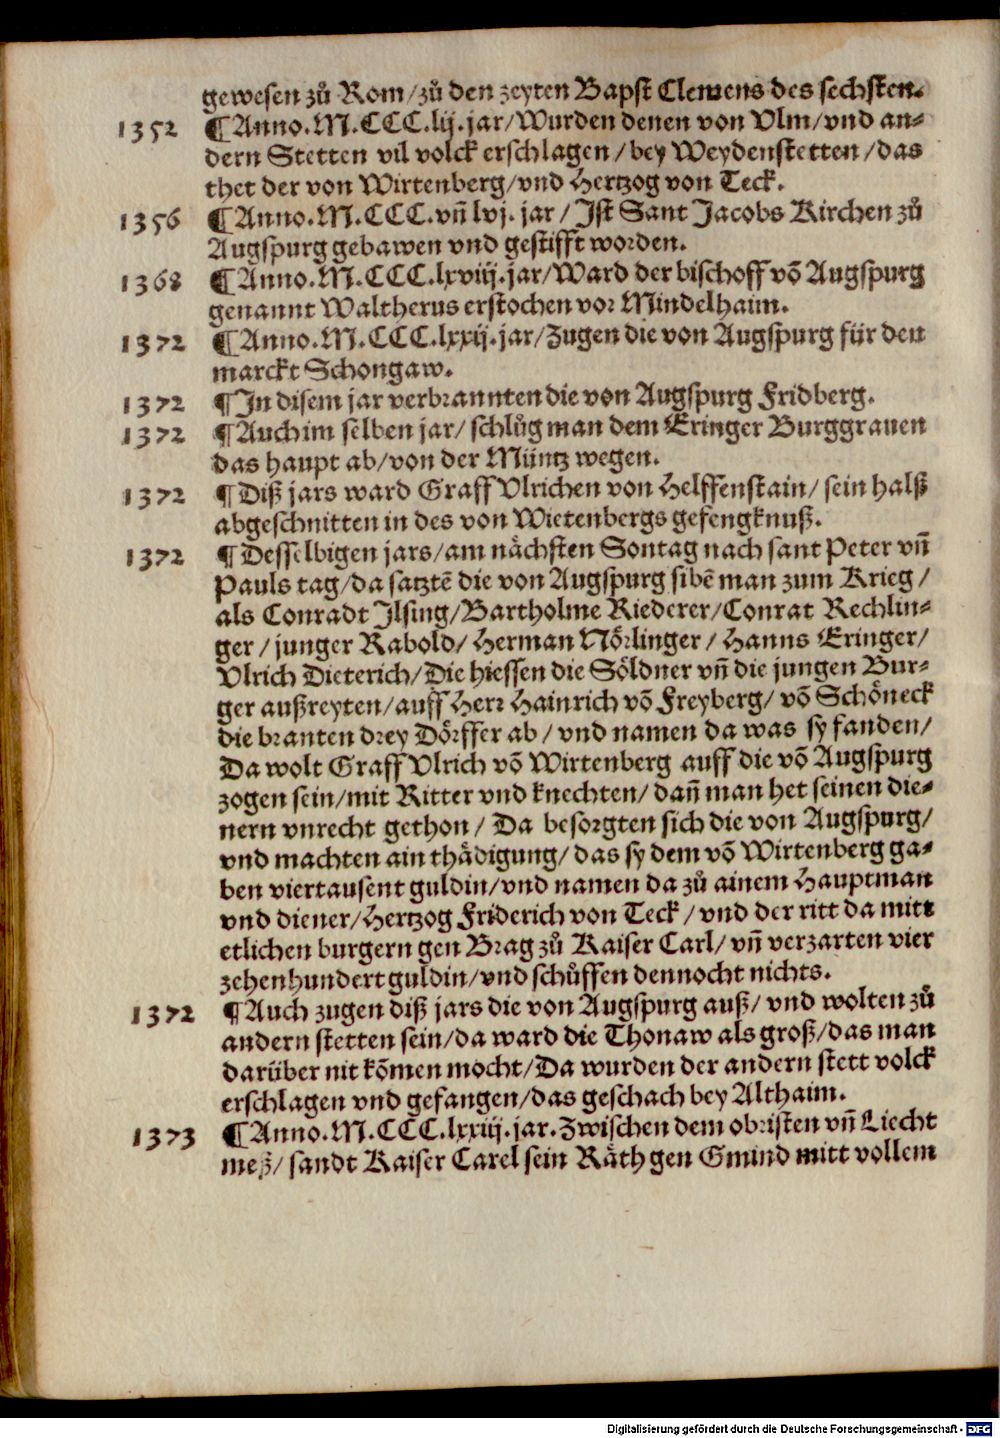 gewesen zů Rom/zů den zeyten Bapst Clemens des sechsten.
1352 ¶ Anno.M.CCC.lij.jar/Wurden denen von Vlm/vnd an⸗
dern Stetten vil volck erschlagen/bey Weydenstetten/das
thet der von Wirtenberg/vnd Hertzog von Teck.
1356 ¶ Anno.M.CCC.vñ lvj.jar/Jst Sant Jacobs Kirchen zů
Augspurg gebawen vnd gestifft worden.
1368 ¶ Anno.M.CCC.lxviij.jar/Ward der bischoff võ Augspurg
genannt Waltherus erstochen vor Mindelhaim.
1372 ¶ Anno.M.CCC.lxxij.jar/Zugen die von Augspurg für den
marckt Schongaw.
1372 ¶ Jn disem jar verbrannten die von Augspurg Fridberg.
1372 ¶ Auch im selben jar/schlůg man dem Eringer Burggrauen
das haupt ab/von der Müntz wegen.
1372 ¶ Diß jars ward Graff Vlrichen von Helffenstain/sein halß
abgeschnitten in des von Wietenbergs gefengknuß.
1372 ¶ Desselbigen jars/am nächsten Sontag nach sant Peter vñ
Pauls tag/da satztẽ die von Augspurg sibẽ man zum Krieg/
als Conradt Jlsing/Bartholme Riederer/Conrat Rechlin⸗
ger/junger Rabold/Herman Nörlinger/Hanns Eringer/
Vlrich Dieterich/Die hiessen die Söldner vñ die jungen Bur⸗
ger außreyten/auff Herr Hainrich võ Freyberg/võ Schöneck
die branten drey Dörffer ab/vnd namen da was sy fanden/
Da wolt Graff Vlrich võ Wirtenberg auff die võ Augspurg
zogen sein/mit Ritter vnd knechten/dañ man het seinen die⸗
nern vnrecht gethon/Da besorgten sich die von Augspurg/
vnd machten ain thädigung/das sy dem võ Wirtenberg ga⸗
ben viertausent guldin/vnd namen da zů ainem Hauptman
vnd diener/Hertzog Friderich von Teck/vnd der ritt da mitt
etlichen burgern gen Brag zů Kaiser Carl/vñ verzarten vier
zehenhundert guldin/vnd schůffen dennocht nichts.
1372 ¶ Auch zugen diß jars die von Augspurg auß/vnd wolten zů
andern stetten sein/da ward die Thonaw als groß/das man
darüber nit kõmen mocht/Da wurden der andern stett volck
erschlagen vnd gefangen/das geschach bey Althaim.
1373 ¶ Anno.M.CCC.lxxiij.jar.Zwischen dem obristen vñ Liecht
meß/sandt Kaiser Carel sein Räth gen Gmind mitt vollem
Digitalisierung gefördert durch die Deutsche Forschungsgemeinschaft - DFG